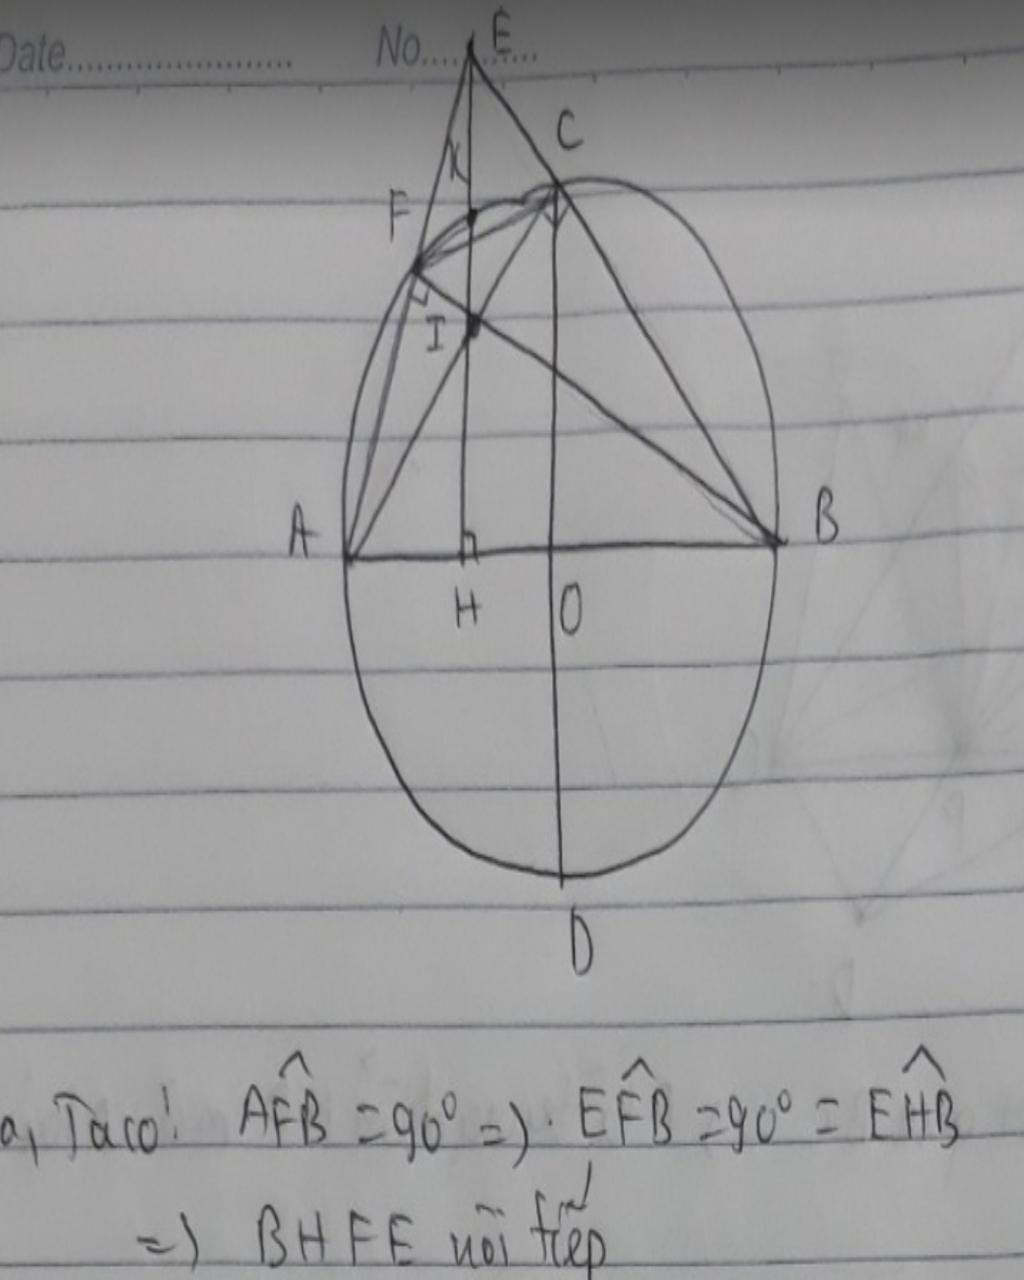 Date...................... No............
E
C
K
F
I
A
B
H
O
D
a, Ta có: AF̂B = 90° => EF̂B = 90° = EĤB
=> BHFE nội tiếp